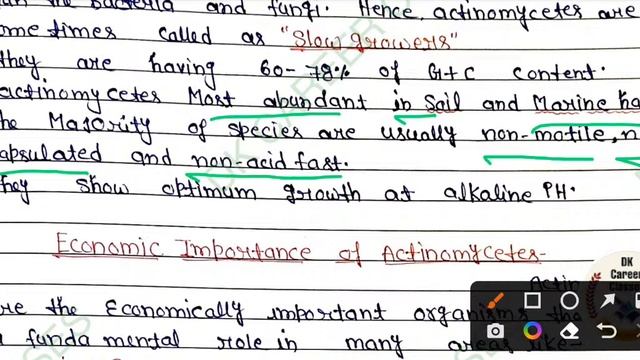 the bacteria and fungi. Hence, actinomycetes are
ome times called as "Slow growers"
they are having 60-78% of G+C content.
actinomycetes Most abundant in Soil and Marine ha
he Majority of species are usually non-motile, n
apsulated and non-acid fast.
hey show optimum growth at alkaline PH.
Economic Importance of Actinomycetes-
Actin
re the Economically important organisms tha
funda mental role in many areas like-
DK
Career
Classes